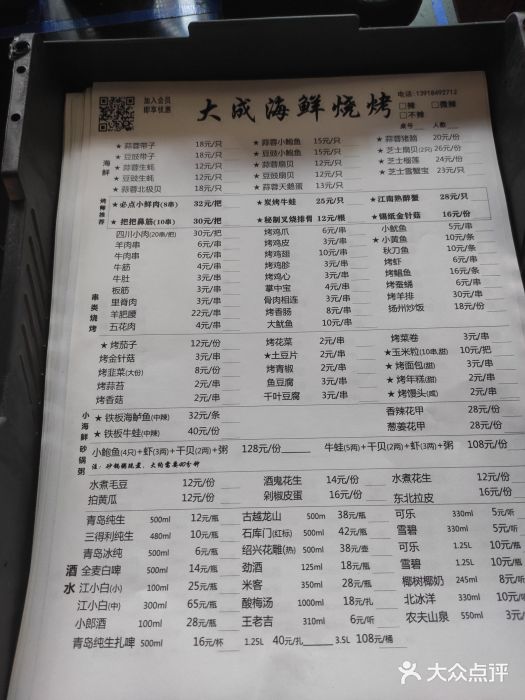 加入会员
即享优惠
大成海鲜烧烤
电话:13918492712
□辣 □微辣
□不辣
桌号__ 人数__
海鲜
★蒜蓉带子 18元/只 ★蒜蓉小鲍鱼 15元/只 ★蒜蓉猪脑 20元/份
★豆豉带子 18元/只 ★豆豉小鲍鱼 15元/只 ★芝士扇贝(2只) 26元/份
★蒜蓉生蚝 12元/只 ★蒜蓉扇贝 12元/只 ★芝士榴莲 24元/份
★豆豉生蚝 12元/只 ★豆豉扇贝 12元/只 ★芝士雪蟹宝 23元/只
★蒜蓉北极贝 18元/只 ★蒜蓉天鹅蛋 13元/只
烤师推荐
★必点小鲜肉(8串) 32元/把 ★炭烤牛蛙 25元/只 ★江南熟醉蟹 28元/只
★把把鼻筋(10串) 30元/把 ★秘制叉烧排骨 12元/根 ★锡纸金针菇 16元/份
串类烧烤
四川小肉(20串/把) 30元/把 烤鸡爪 6元/串 小鱿鱼 5元/串
羊肉串 6元/串 烤鸡皮 3元/串 ★小黄鱼 10元/条
牛肉串 6元/串 烤鸡翅 10元/串 秋刀鱼 10元/条
牛筋 4元/串 烤鸡胗 3元/串 烤虾 6元/串
牛肚 3元/串 烤鸡心 3元/串 烤鲳鱼 16元/条
板筋 3元/串 掌中宝 4元/串 烤蚕蛹 6元/串
里脊肉 3元/串 骨肉相连 3元/串 烤羊排 30元/串
羊肥腰 22元/串 烤香肠 8元/串 扬州炒饭 18元/份
五花肉 4元/串 大鱿鱼 10元/串
★烤茄子 12元/份 烤花菜 2元/串 烤菜卷 3元/串
烤金针菇 3元/串 ★土豆片 2元/串 ★玉米粒(10串,甜) 10元/把
烤韭菜(大份) 8元/份 烤青椒 2元/串 ★烤面包(甜) 3元/串
烤蒜苔 2元/串 鱼豆腐 3元/串 ★烤年糕(甜) 2元/串
烤香菇 2元/串 千叶豆腐 3元/串 ★烤馒头(咸) 2元/串
小海鲜
★铁板海鲈鱼(中辣) 32元/条 香辣花甲 28元/份
★铁板牛蛙(中辣) 40元/份 葱姜花甲 28元/份
砂锅粥
小鲍鱼(4只)+虾(3两)+干贝(2两)+粥 128元/份 牛蛙(5两)+干贝(2两)+虾(3两)+粥 108元/份
注:砂锅粥现煮,大约需要40分钟
水煮毛豆 12元/份 酒鬼花生 14元/份 水煮花生 12元/份
拍黄瓜 12元/份 剁椒皮蛋 16元/份 东北拉皮 16元/份
酒水
青岛纯生 500ml 12元/瓶 古越龙山 500m 38元/瓶 可乐 330ml 5元/听
三得利纯生 480ml 10元/瓶 石库门(红标) 500ml 42元/瓶 雪碧 330ml 5元/听
青岛冰纯 500ml 6元/瓶 绍兴花雕(热) 500ml 38元/壶 可乐 1.25L 10元/瓶
全麦白啤 500ml 14元/瓶 劲酒 125ml 18元/瓶 雪碧 1.25L 10元/瓶
江小白(小) 100ml 25元/瓶 米客 350ml 28元/瓶 椰树椰奶 245ml 8元/听
江小白(中) 300ml 65元/瓶 酸梅汤 1000ml 18元/扎 北冰洋 330ml 10元/
小郎酒 100ml 28元/瓶 王老吉 310ml 6元/听 农夫山泉 550ml 3元/
青岛纯生扎啤 500ml 16元/杯 1.25L 40元/扎 3.5L 108元/桶
大众点评